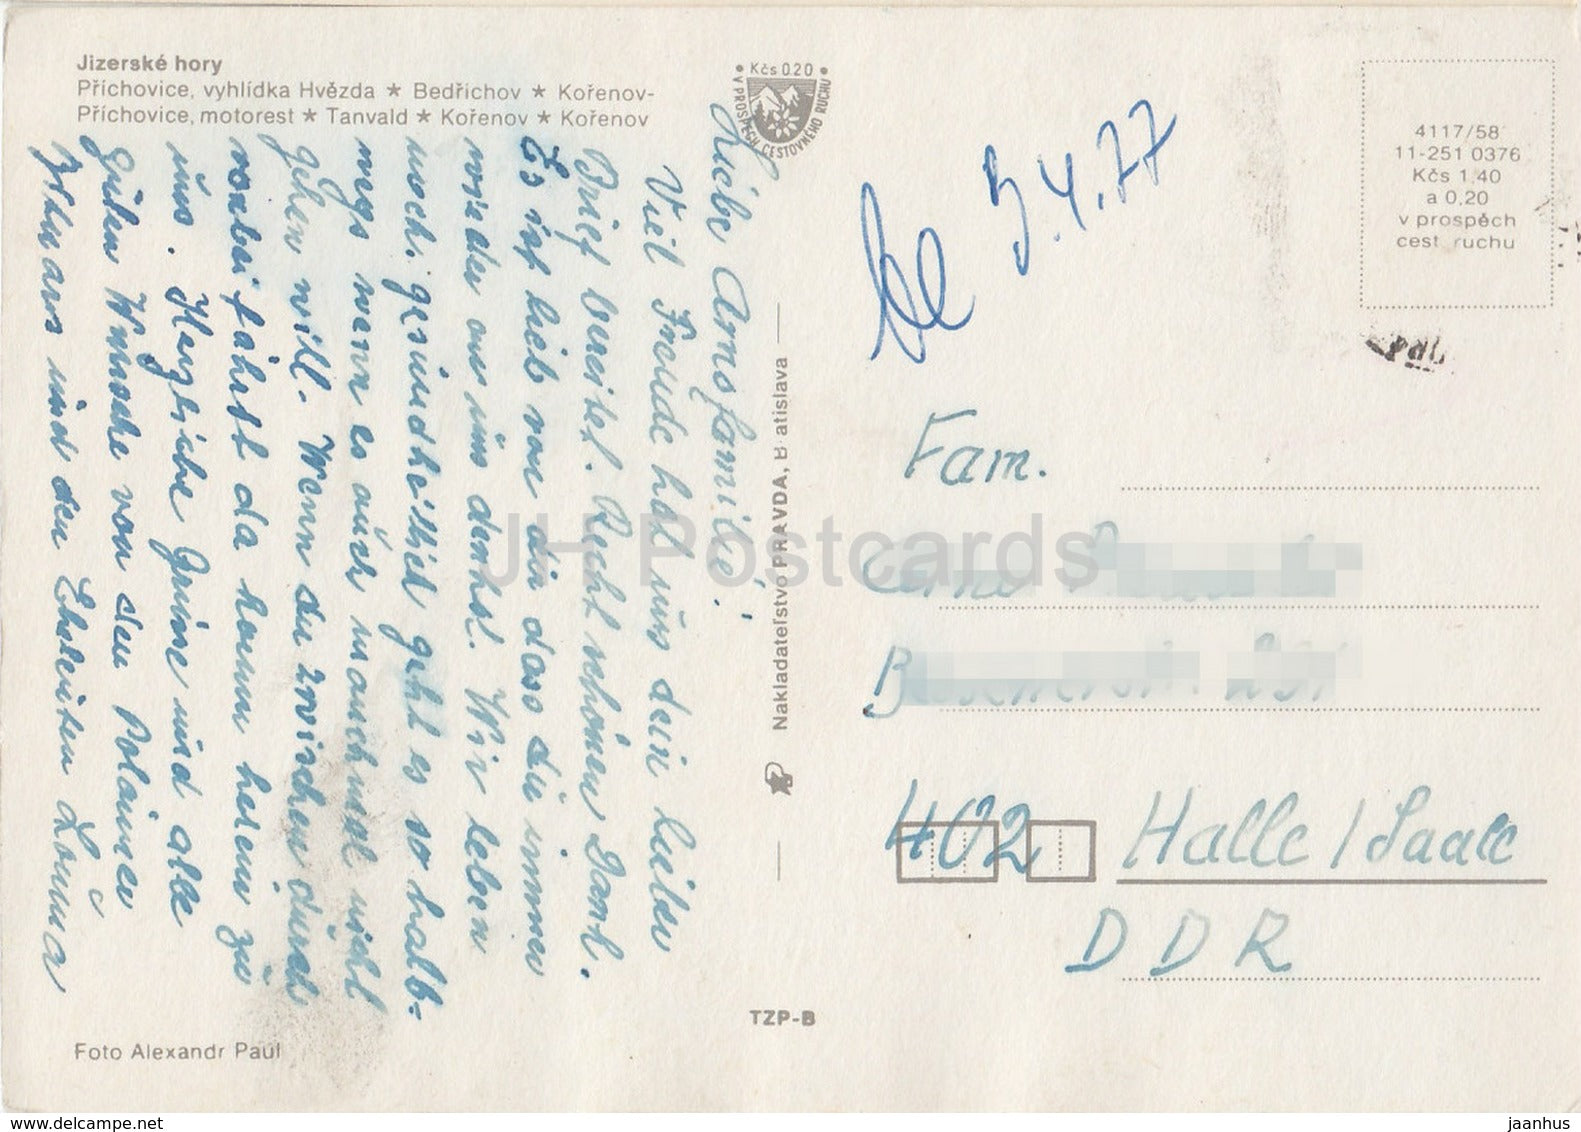 Jizerské hory
Příchovice, vyhlídka Hvězda ★ Bedřichov ★ Kořenov-
Příchovice, motorest ★ Tanvald ★ Kořenov ★ Kořenov
• Kčs 0.20 •
V PROSPĚCH CESTOVNÉHO RUCHU
Liebe Arnofamilie!
Viel Freude hat uns dein lieber
Brief bereitet. Recht schönen Dank.
Es ist lieb von dir dass du immer
wieder an uns denkst. Wir leben
noch, gesundheitlich geht es so halb-
wegs wenn es auch manchmal nicht
gehen will. Wenn du zwischen durch
vorbei fährst da komm herein zu
uns. Herzliche Grüsse und alle
guten Wünsche von den Polauner
und den Eheleiten
Foto Alexandr Paul
Nakladateľstvo PRAVDA, Bratislava
TZP-B
5.4.77
4117/58
11-251 0376
Kčs 1,40
a 0,20
v prospěch
cest. ruchu
Fam.
Arno
402 Halle / Saale
DDR
JH Postcards
delcampe.net
jaanhus